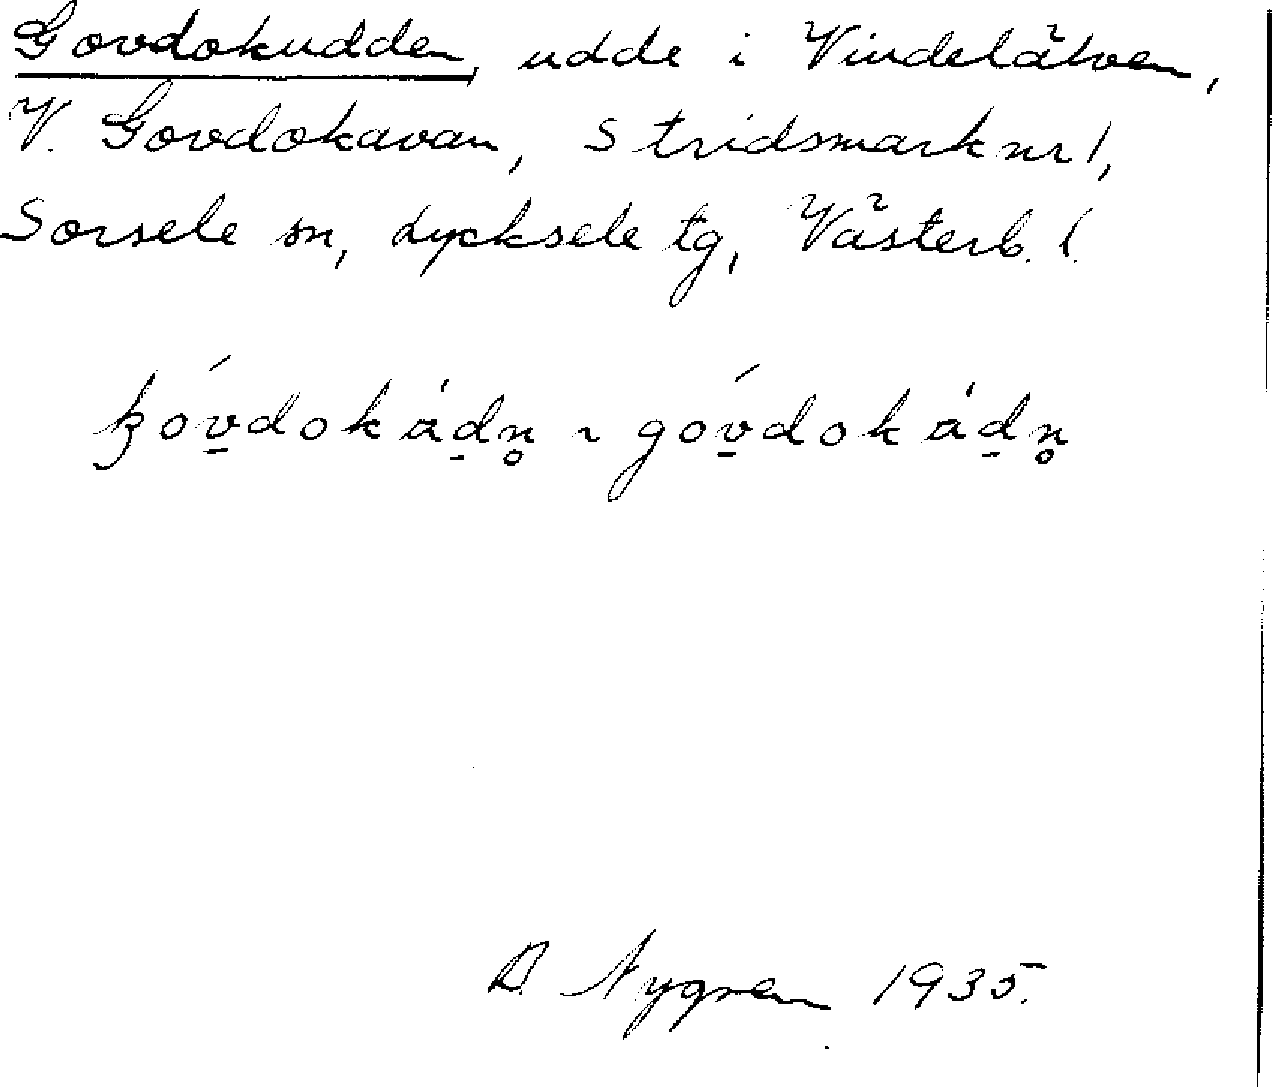 Govdokudden, udde i Vindelälven,
V. Govdokavan, Stridsmark nr 1,
Sorsele sn, Lycksele tg, Västerb. l.
A. Nygren 1935.